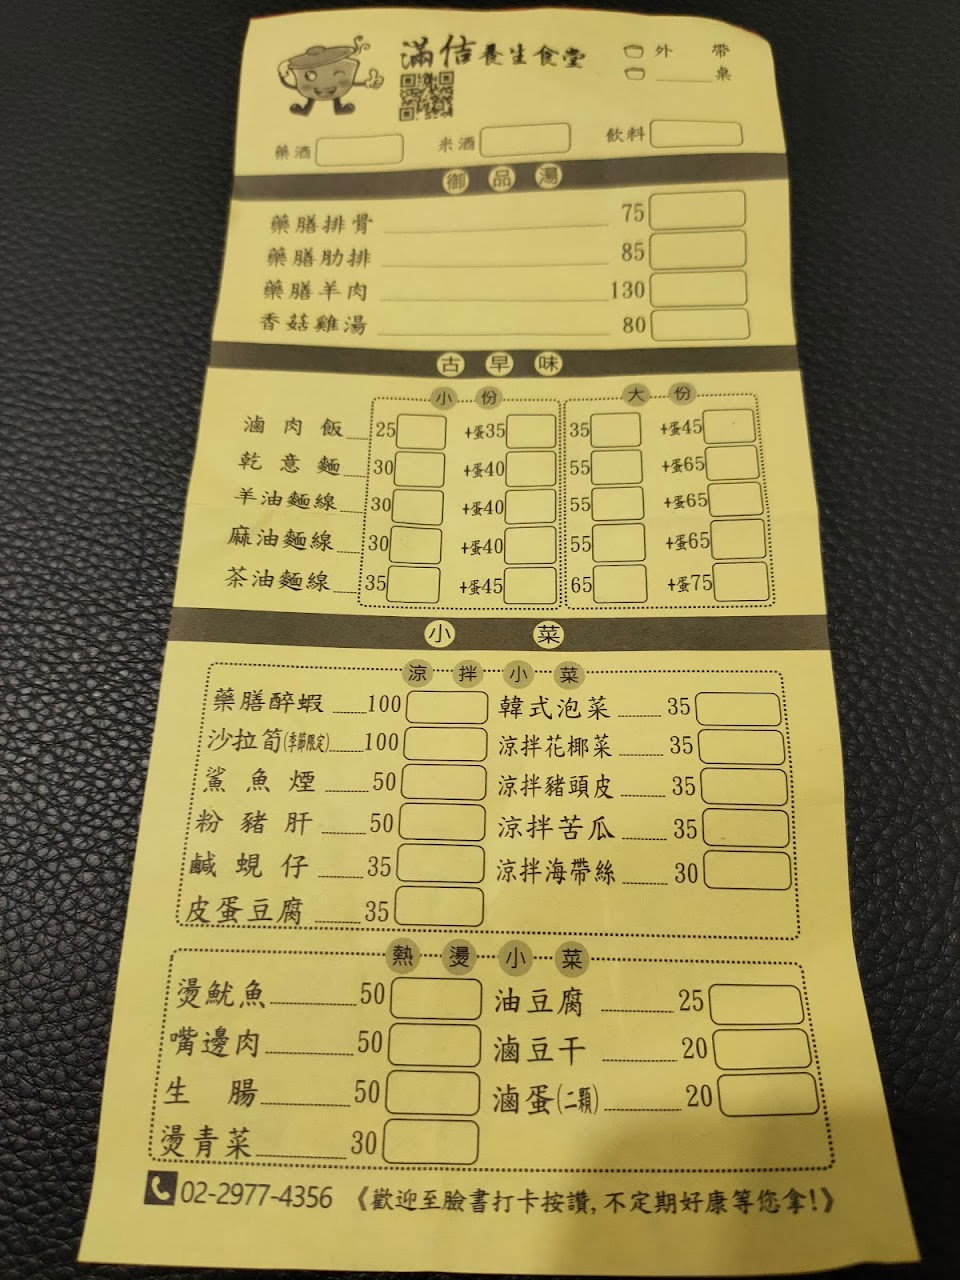 滿佶養生食堂
外 帶
______桌
藥酒 米酒 飲料
御品湯
藥膳排骨 75
藥膳肋排 85
藥膳羊肉 130
香菇雞湯 80
古早味
小份 大份
滷肉飯 25 +蛋35 35 +蛋45
乾意麵 30 +蛋40 55 +蛋65
羊油麵線 30 +蛋40 55 +蛋65
麻油麵線 30 +蛋40 55 +蛋65
茶油麵線 35 +蛋45 65 +蛋75
小菜
涼拌小菜
藥膳醉蝦 100 韓式泡菜 35
沙拉筍(季節限定) 100 涼拌花椰菜 35
鯊魚煙 50 涼拌豬頭皮 35
粉豬肝 50 涼拌苦瓜 35
鹹蜆仔 35 涼拌海帶絲 30
皮蛋豆腐 35
熱燙小菜
燙魷魚 50 油豆腐 25
嘴邊肉 50 滷豆干 20
生腸 50 滷蛋(二顆) 20
燙青菜 30
02-2977-4356 《歡迎至臉書打卡按讚,不定期好康等您拿!》